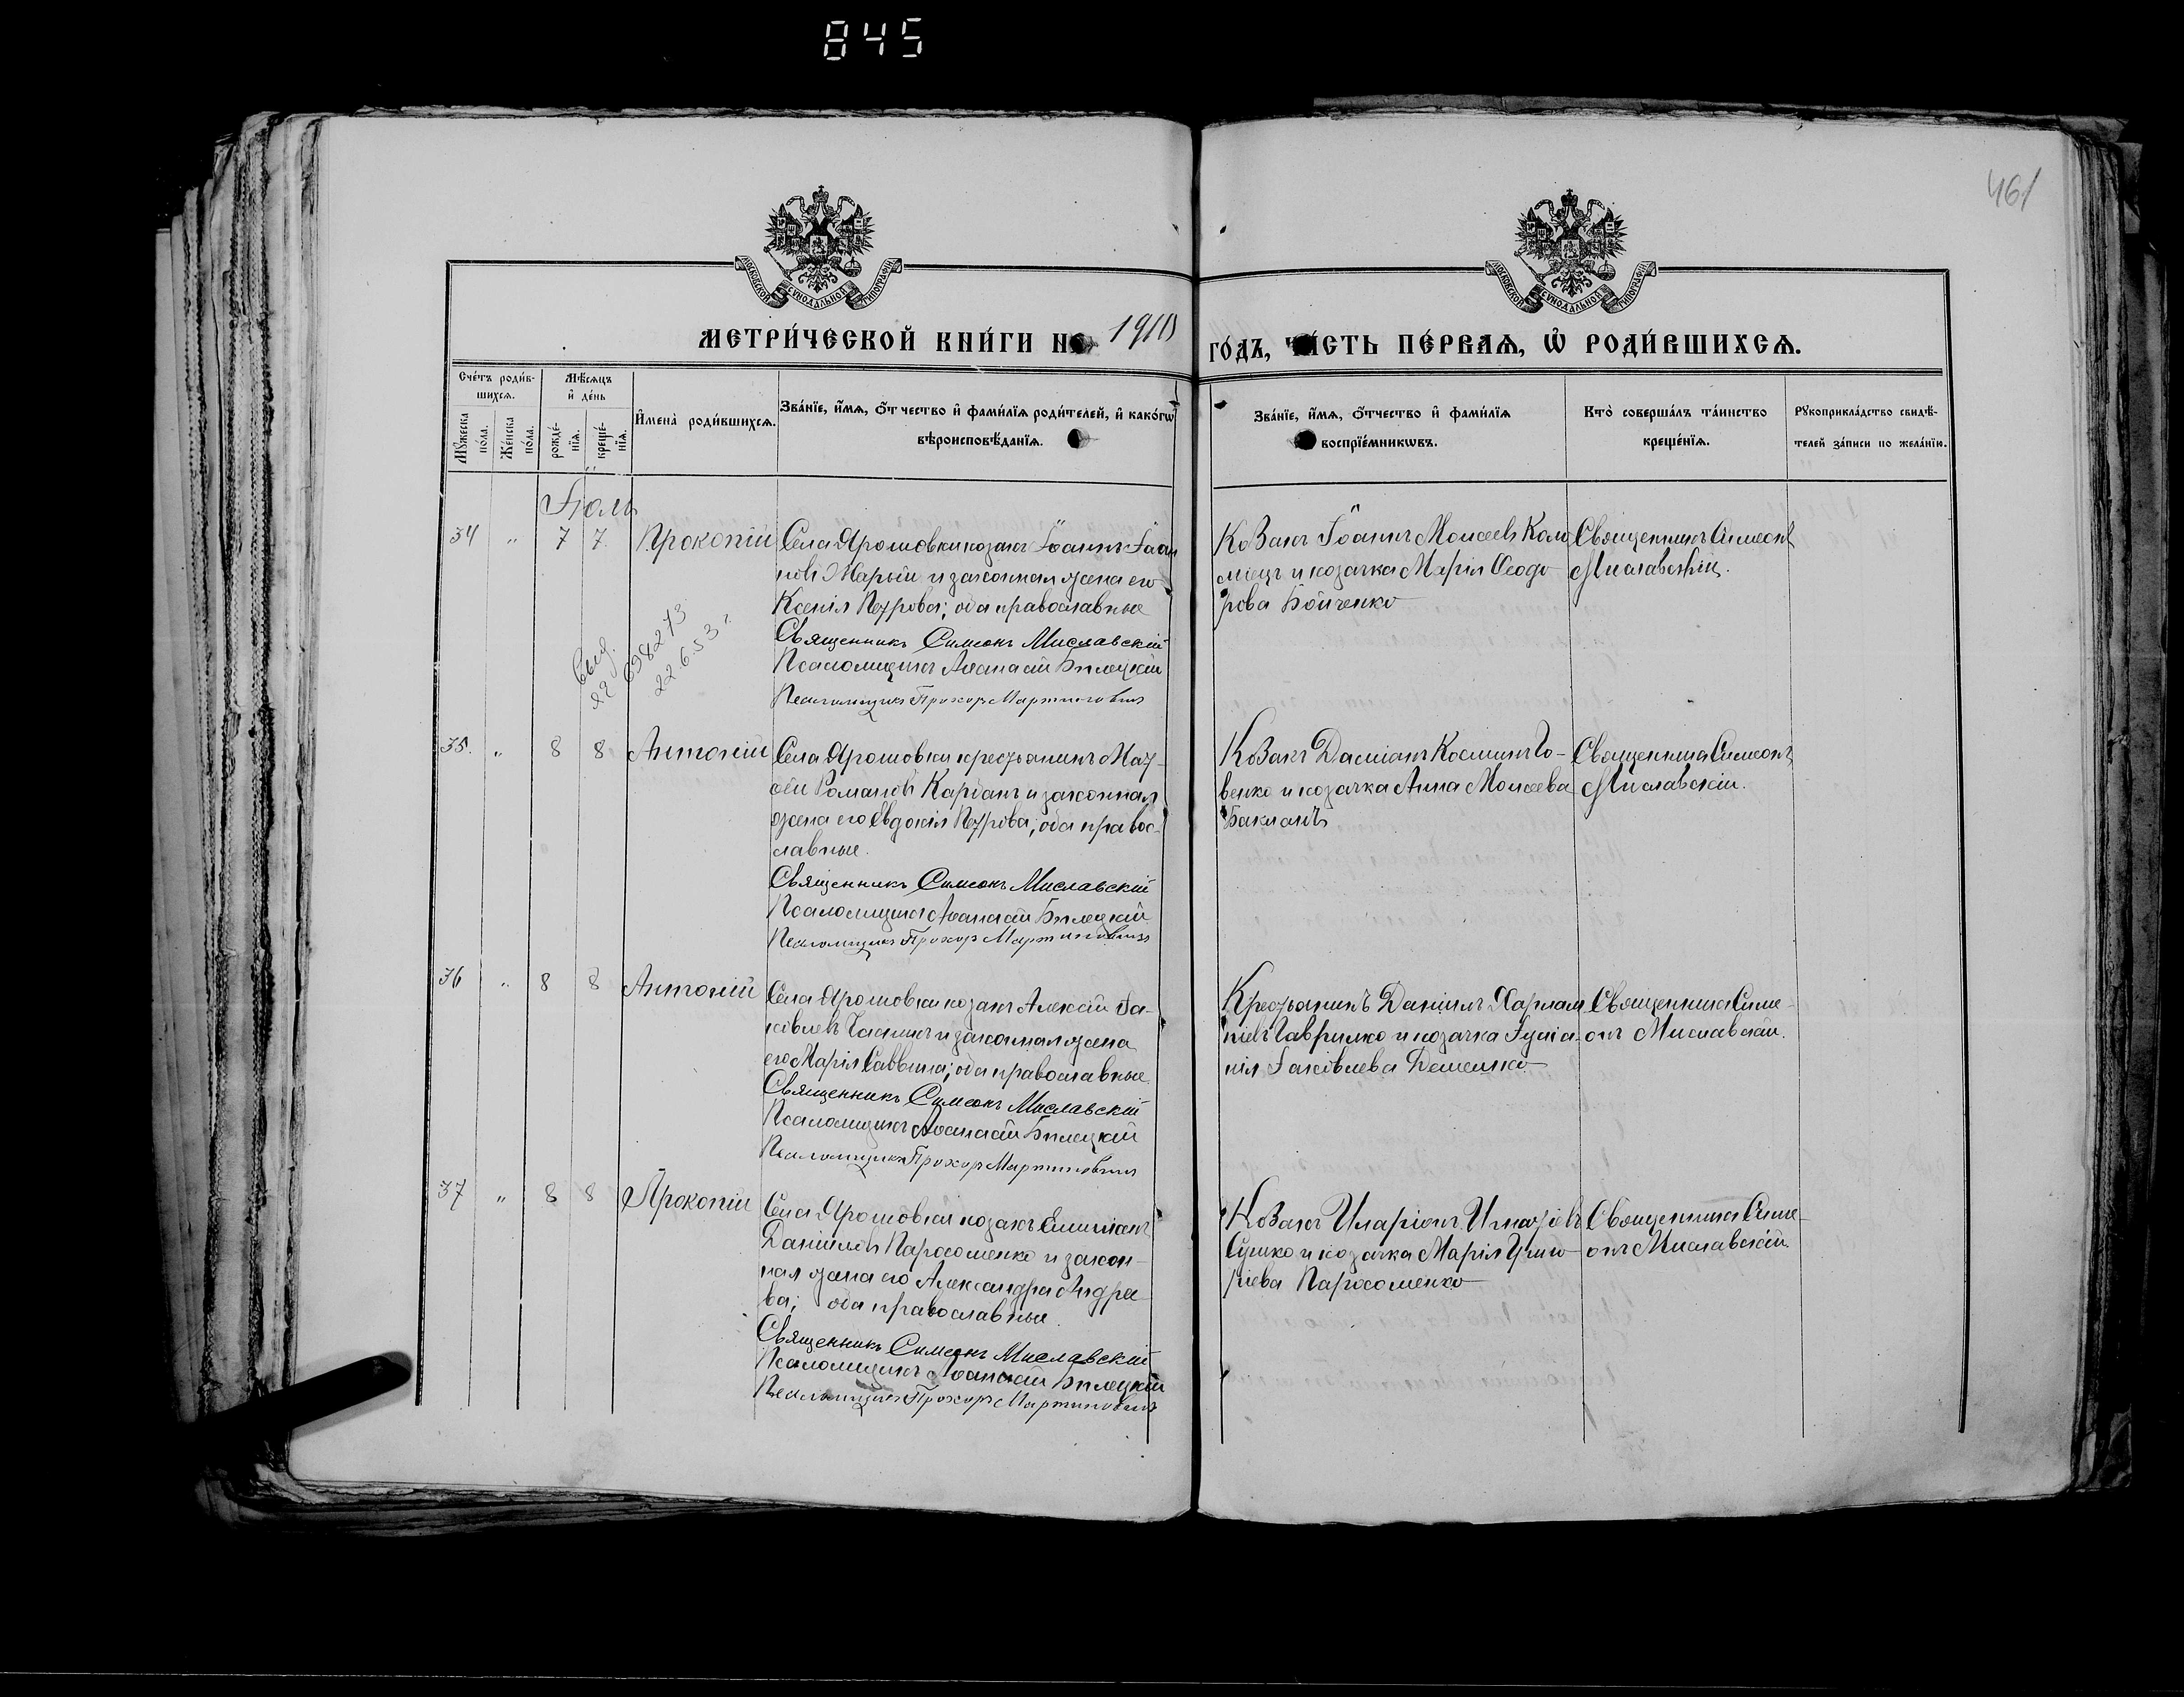 845
461
МОСКОВСКОЙ СУНОДАЛЬНОЙ ТИПОГРАФІИ
МОСКОВСКОЙ СУНОДАЛЬНОЙ ТИПОГРАФІИ
МЕТРИ́ЧЕСКОЙ КНИ́ГИ НА 1910 ГО́ДЪ, ЧА́СТЬ ПЕ́РВАѦ, Ѡ РОДИ́ВШИХСѦ.
Сче́тъ роди́в-
шихсѧ.
Мꙋжеска по́ла.
Же́нска по́ла.
Мѣ́сѧцъ и де́нь
рожде́-
нїѧ.
креще́-
нїѧ.
Имена̀ роди́вшихсѧ.
Зва́нїе, и́мѧ, о́тчество и фами́лїѧ роди́телей, и како́гѡ
вѣроисповѣ́данїѧ.
Зва́нїе, и́мѧ, о́тчество и фами́лїѧ
воспрїе́мникѡвъ.
Кто̀ соверша́лъ та́инство
креще́нїѧ.
Рꙋкоприкла́дство свидѣ́-
телей за́писи по жела́нїю.
Іюль
34 " 7 7 Прокопій
Села Ярошовки козакъ Іоаннъ Іоан
новъ и законная жена его
Ксенія Петрова; оба православные
Священникъ Симеонъ Миславскій
Псаломщикъ Аѳанасій Билецкій
Псаломщикъ Прохоръ Мартиновичъ
Свид.
698273
22.6.53 г.
Козакъ Іоаннъ Моисеевъ Коло
міецъ и козачка Марія Ѳеодо
рова Бойченко
Священникъ Симеонъ
Миславскій.
35. " 8 8 Антоній
Села Ярошовки крестьянинъ Мат-
ѳей Романовъ и законная
жена его Евдокія Петрова; оба правос-
славные.
Священникъ Симеонъ Миславскій
Псаломщикъ Аѳанасій Билецкій
Псаломщикъ Прохоръ Мартиновичъ
Козакъ Даміанъ Косминъ Го-
венко и козачка Анна Моисеева
Бакланъ
Священникъ Симеонъ
Миславскій.
36 " 8 8 Антоній
Села Ярошовки козакъ Алексій Іа-
ковлевъ и законная жена
его Марія Саввина; оба православные
Священникъ Симеонъ Миславскій
Псаломщикъ Аѳанасій Билецкій
Псаломщикъ Прохоръ Мартиновичъ
Крестьянинъ Даніилъ Харлам
піевъ Гаврилко и козачка Іуліа-
нія Іаковлева
Священникъ Симе-
онъ Миславскій.
37 " 8 8 Прокопій
Села Ярошовки козакъ Емиліанъ
Даніиловъ Пархоменко и закон-
ная жена его Александра Андрее-
ва; оба православные.
Священникъ Симеонъ Миславскій
Псаломщикъ Аѳанасій Билецкій
Псаломщикъ Прохоръ Мартиновичъ
Козакъ Иларіонъ Игнатіевъ
Сушко и козачка Марія Григо-
ріева Пархоменко
Священникъ Симе-
онъ Миславскій.